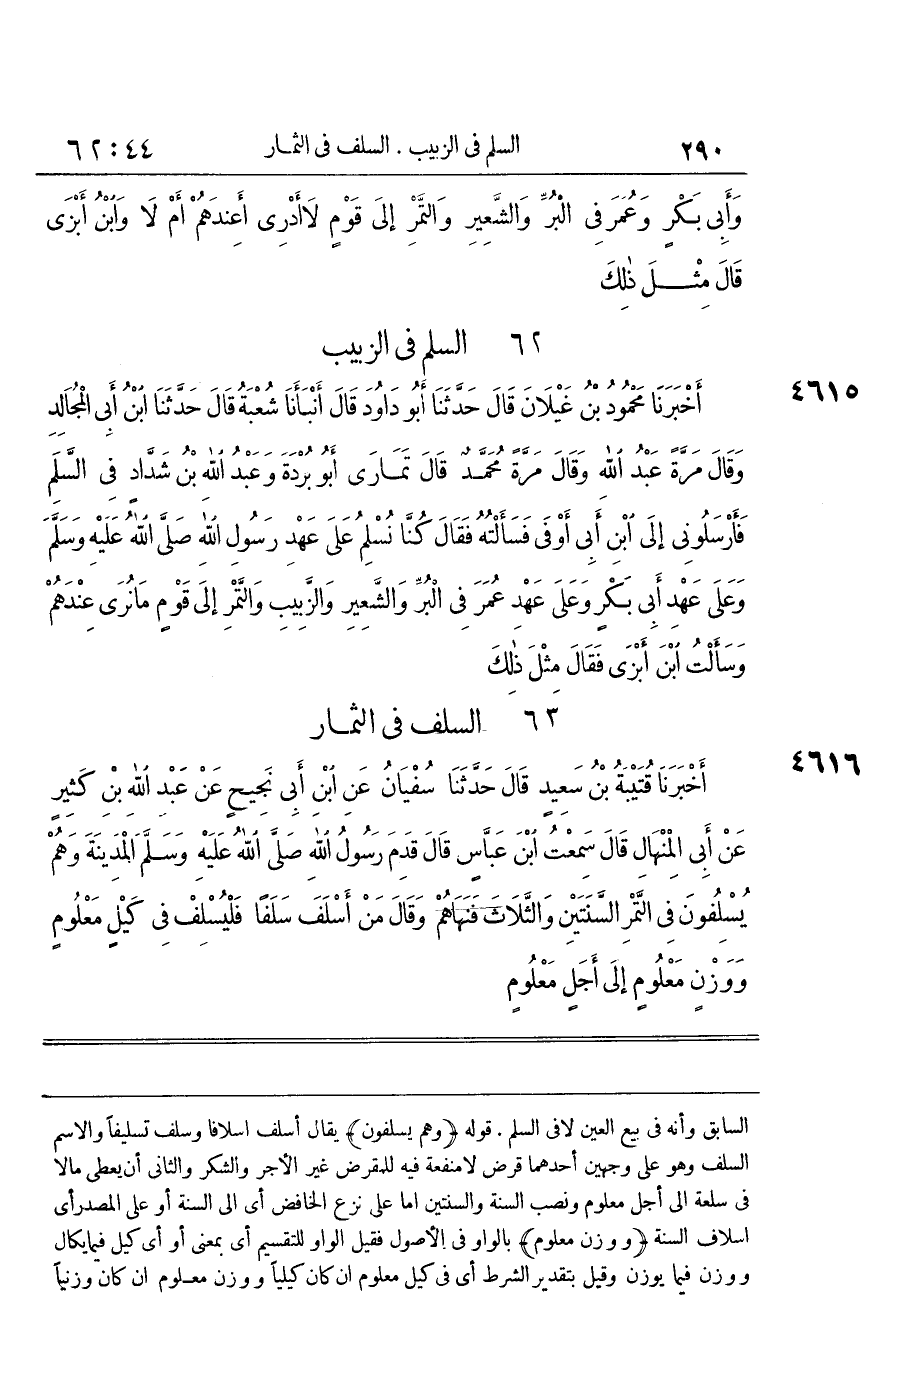 ٢٩٠ السلم فى الزبيب . السلف فى الثمار ٤٤ : ٦٢
وَأَبِى بَكْرٍ وَعُمَرَ فِى الْبُرِّ وَالشَّعِيرِ وَالتَّمْرِ إِلَى قَوْمٍ لَاأَدْرِى أَعِنْدَهُمْ أَمْ لَا وَابْنُ أَبْزَى
قَالَ مِثْلَ ذٰلِكَ
٦٢ السلم فى الزبيب
٤٦١٥ أَخْبَرَنَا مَحْمُودُ بْنُ غَيْلَانَ قَالَ حَدَّثَنَا أَبُو دَاوُدَ قَالَ أَنْبَأَنَا شُعْبَةُ قَالَ حَدَّثَنَا ابْنُ أَبِى الْمُجَالِدِ
وَقَالَ مَرَّةً عَبْدُ اللهِ وَقَالَ مَرَّةً مُحَمَّدٌ قَالَ تَمَارَى أَبُو بُرْدَةَ وَعَبْدُ اللهِ بْنُ شَدَّادٍ فِى السَّلَمِ
فَأَرْسَلُونِى إِلَى ابْنِ أَبِى أَوْفَى فَسَأَلْتُهُ فَقَالَ كُنَّا نُسْلِمُ عَلَى عَهْدِ رَسُولِ اللهِ صَلَّى اللهُ عَلَيْهِ وَسَلَّمَ
وَعَلَى عَهْدِ أَبِى بَكْرٍ وَعَلَى عَهْدِ عُمَرَ فِى الْبُرِّ وَالشَّعِيرِ وَالزَّبِيبِ وَالتَّمْرِ إِلَى قَوْمٍ مَانُرَى عِنْدَهُمْ
وَسَأَلْتُ ابْنَ أَبْزَى فَقَالَ مِثْلَ ذٰلِكَ
٦٣ السلف فى الثمار
٤٦١٦ أَخْبَرَنَا قُتَيْبَةُ بْنُ سَعِيدٍ قَالَ حَدَّثَنَا سُفْيَانُ عَنِ ابْنِ أَبِى نَجِيحٍ عَنْ عَبْدِ اللهِ بْنِ كَثِيرٍ
عَنْ أَبِى الْمِنْهَالِ قَالَ سَمِعْتُ ابْنَ عَبَّاسٍ قَالَ قَدِمَ رَسُولُ اللهِ صَلَّى اللهُ عَلَيْهِ وَسَلَّمَ الْمَدِينَةَ وَهُمْ
يُسْلِفُونَ فِى التَّمْرِ السَّنَتَيْنِ وَالثَّلَاثَ فَنَهَاهُمْ وَقَالَ مَنْ أَسْلَفَ سَلَفًا فَلْيُسْلِفْ فِى كَيْلٍ مَعْلُومٍ
وَوَزْنٍ مَعْلُومٍ إِلَى أَجَلٍ مَعْلُومٍ
السابق وأنه فى بيع العين لافى السلم . قوله ﴿وهم يسلفون﴾ يقال أسلف اسلافا وسلف تسليفاً والاسم
السلف وهو على وجهين أحدهما قرض لامنفعة فيه للمقرض غير الأجر والشكر والثانى أن يعطى مالا
فى سلعة الى أجل معلوم ونصب السنة والسنتين اما على نزع الخافض أى الى السنة أو على المصدر أى
اسلاف السنة ﴿ووزن معلوم﴾ بالواو فى الأصول فقيل الواو للتقسيم أى بمعنى أو أى كيل فيما يكال
ووزن فيما يوزن وقيل بتقدير الشرط أى فى كيل معلوم ان كان كيلياً ووزن معلوم ان كان وزنياً